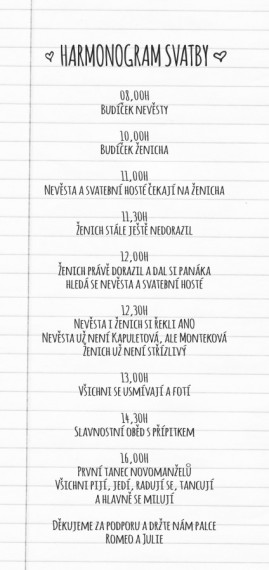 HARMONOGRAM SVATBY
08,00H
BUDÍČEK NEVĚSTY
10,00H
BUDÍČEK ŽENICHA
11,00H
NEVĚSTA A SVATEBNÍ HOSTÉ ČEKAJÍ NA ŽENICHA
11,30H
ŽENICH STÁLE JEŠTĚ NEDORAZIL
12,00H
ŽENICH PRÁVĚ DORAZIL A DAL SI PANÁKA
HLEDÁ SE NEVĚSTA A SVATEBNÍ HOSTÉ
12,30H
NEVĚSTA I ŽENICH SI ŘEKLI ANO
NEVĚSTA UŽ NENÍ KAPULETOVÁ, ALE MONTEKOVÁ
ŽENICH UŽ NENÍ STŘÍZLIVÝ
13,00H
VŠICHNI SE USMÍVAJÍ A FOTÍ
14,30H
SLAVNOSTNÍ OBĚD S PŘÍPITKEM
16,00H
PRVNÍ TANEC NOVOMANŽELŮ
VŠICHNI PIJÍ, JEDÍ, RADUJÍ SE, TANCUJÍ
A HLAVNĚ SE MILUJÍ
DĚKUJEME ZA PODPORU A DRŽTE NÁM PALCE
ROMEO A JULIE